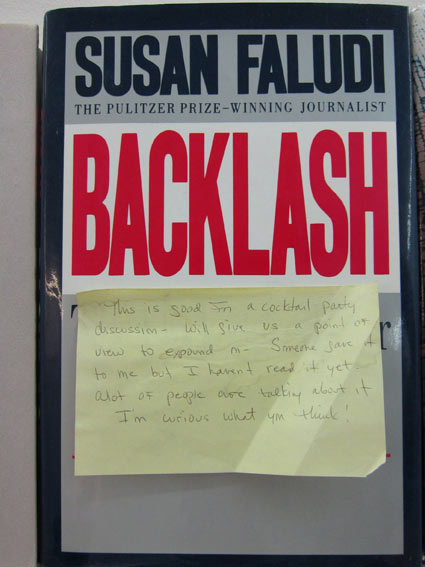 SUSAN FALUDI
THE PULITZER PRIZE–WINNING JOURNALIST
BACKLASH
This is good for a cocktail party
discussion- Will give us a point of
view to expound on- Someone gave it
to me but I haven't read it yet.
Alot of people are talking about it
I'm curious what you think!